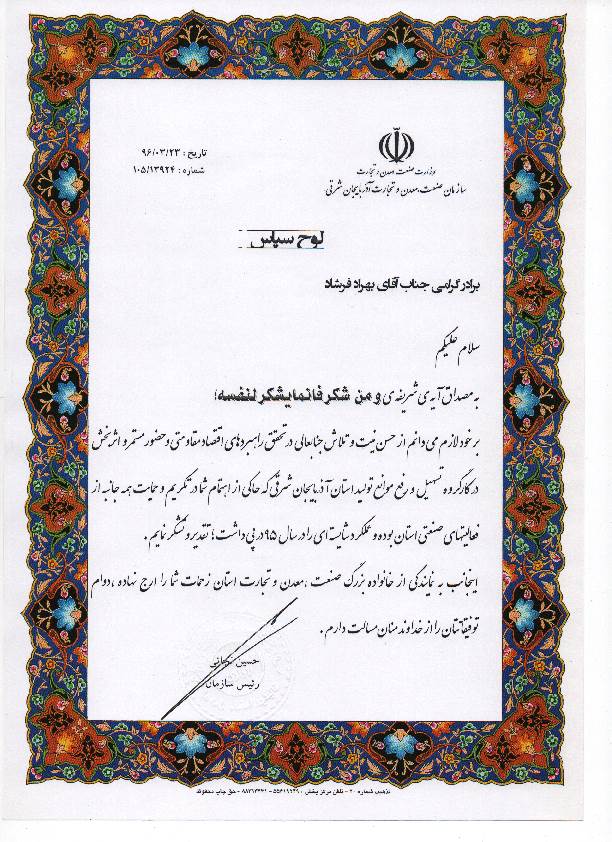 وزارت صنعت، معدن و تجارت
سازمان صنعت، معدن و تجارت آذربایجان شرقی
تاریخ : ۹۶/۰۳/۲۳
شماره : ۱۰۵/۱۳۹۲۴
لوح سپاس
برادر گرامی جناب آقای بهراد فرشاد
سلام علیکم
به مصداق آیه ی شریفه ی و من شکر فانما یشکر لنفسه؛
بر خود لازم می دانم از حسن نیت و تلاش جنابعالی در تحقق راهبردهای اقتصاد مقاومتی و حضور مستمر و اثربخش
در کارگروه تسهیل و رفع موانع تولید استان آذربایجان شرقی که حاکی از اهتمام شما در تکریم و حمایت همه جانبه از
فعالیتهای صنعتی استان بوده و عملکرد شایسته ای را در سال ۹۵ در پی داشت؛ تقدیر و تشکر نمایم .
اینجانب به نمایندگی از خانواده بزرگ صنعت ،معدن و تجارت استان زحمات شما را ارج نهاده ،دوام
توفیقاتتان را از خداوند منان مسالت دارم .
حسین نجاتی
رئیس سازمان
تذهیب شماره ۲۰ - تلفن مرکز پخش : - حق چاپ محفوظ